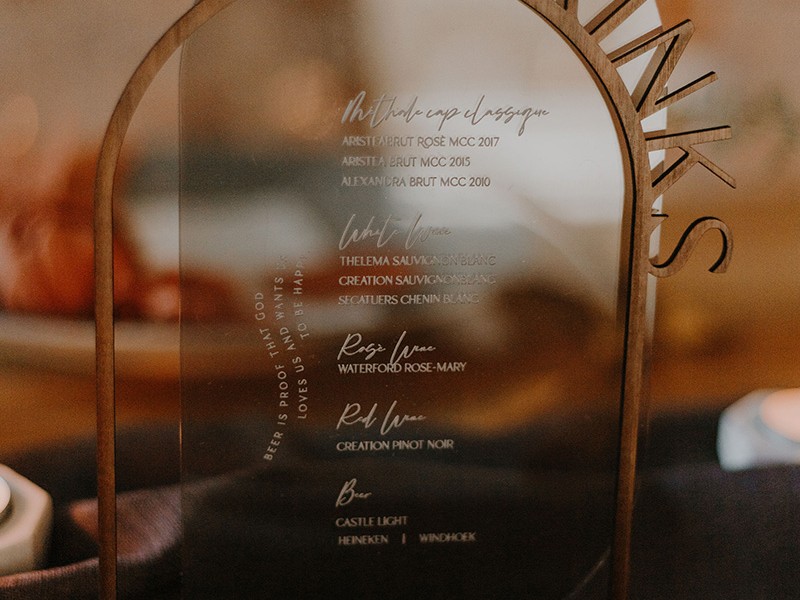 INKS
Methode cap classique
ARISTEA BRUT ROSÈ MCC 2017
ARISTEA BRUT MCC 2015
ALEXANDRA BRUT MCC 2010
White Wine
THELEMA SAUVIGNON BLANC
CREATION SAUVIGNON BLANC
SECATUERS CHENIN BLANC
Rosè Wine
WATERFORD ROSE-MARY
Red Wine
CREATION PINOT NOIR
Beer
CASTLE LIGHT
HEINEKEN | WINDHOEK
BEER IS PROOF THAT GOD
LOVES US AND WANTS US
TO BE HAPPY